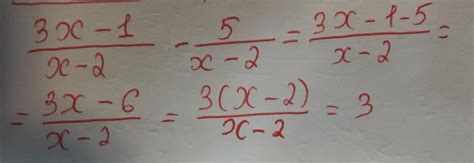 (3x-1)/(x-2) - 5/(x-2) = (3x-1-5)/(x-2) =
= (3x-6)/(x-2) = 3(x-2)/(x-2) = 3